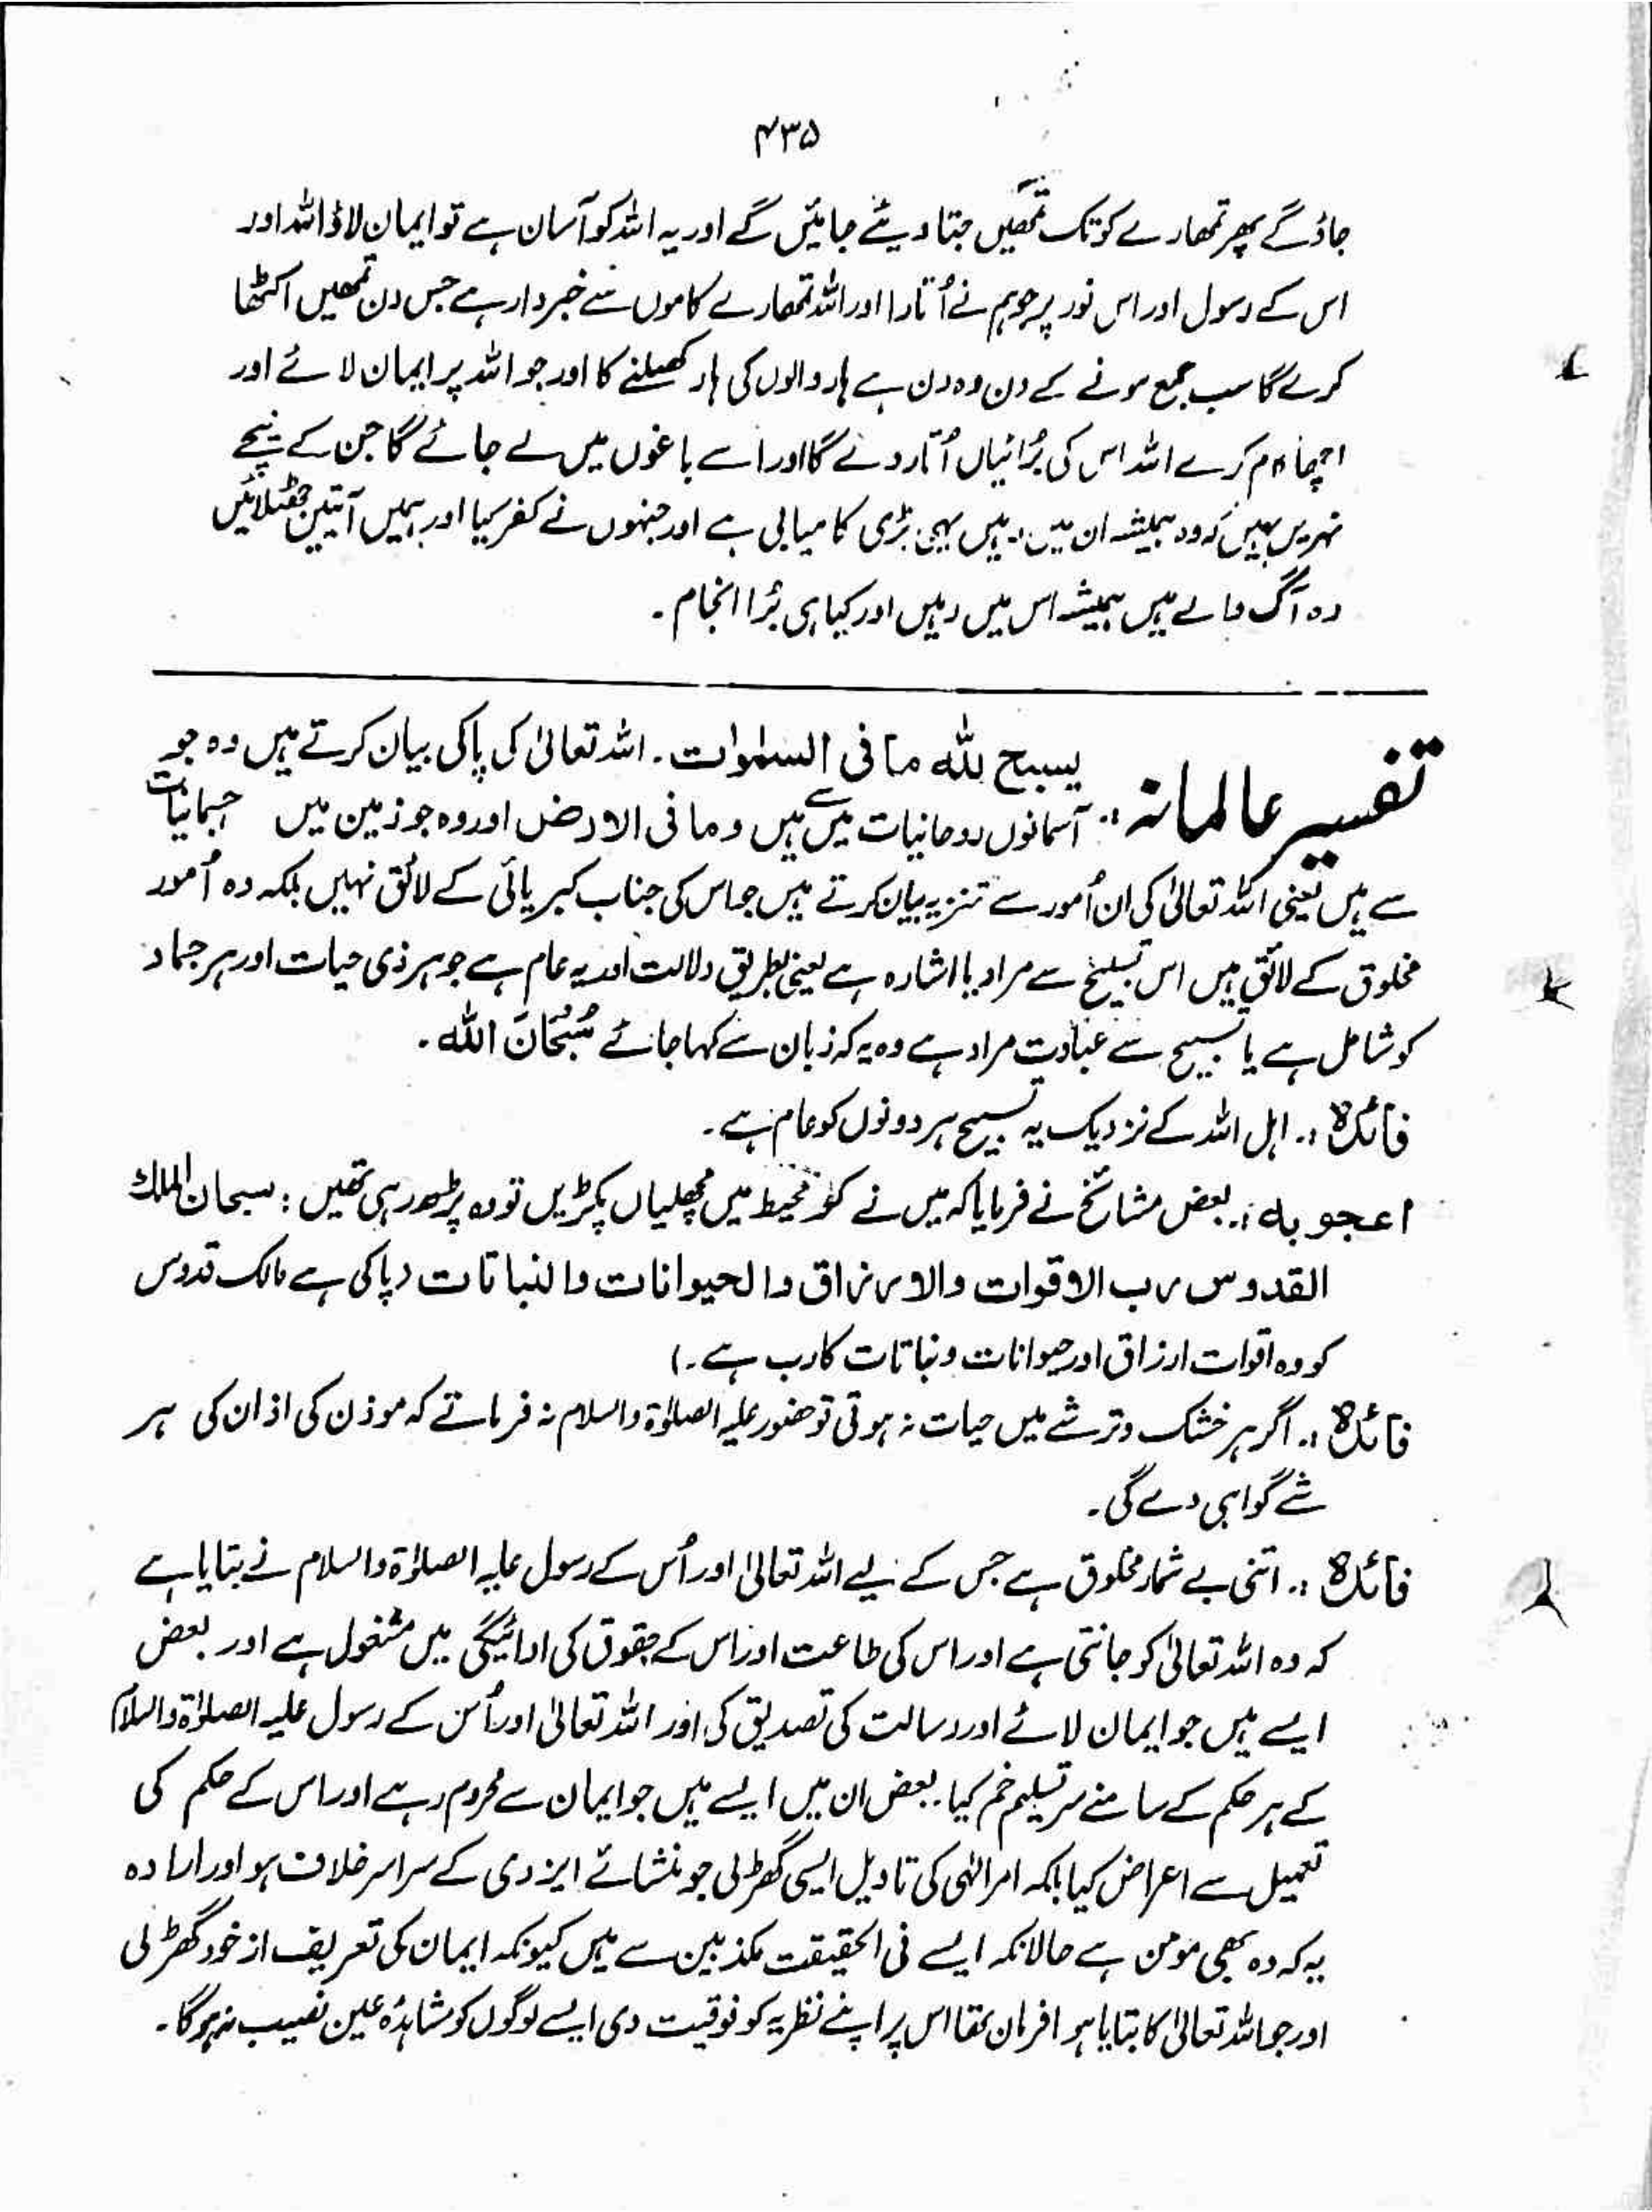 ۴۳۵
جاؤ گے پھر تمھارے کوتک تمھیں جتا دیئے جائیں گے اور یہ اللہ کو آسان ہے تو ایمان لاؤ اللہ اور
اس کے رسول اور اس نور پر جو ہم نے اُتارا اور اللہ تمھارے کاموں سے خبردار ہے جس دن تمھیں اکٹھا
کرے گا سب جمع ہونے کے دن وہ دن ہے ہار والوں کی ہار کھیلنے کا اور جو اللہ پر ایمان لائے اور
اچھا کام کرے اللہ اس کی بُرائیاں اُتار دے گا اور اسے باغوں میں لے جائے گا جن کے نیچے
نہریں بہیں کہ وہ ہمیشہ ان میں رہیں یہی بڑی کامیابی ہے اور جنہوں نے کفر کیا اور ہمیں آیتیں جھٹلائیں
وہ آگ والے ہیں ہمیشہ اس میں رہیں اور کیا ہی بُرا انجام ۔
تفسیر عالمانہ :۔ یسبح للہ ما فی السمٰوات ۔ اللہ تعالیٰ کی پاکی بیان کرتے ہیں وہ جو
آسمانوں روحانیات میں سے ہیں وما فی الارض اور وہ جو زمین میں جسمانیات
سے ہیں یعنی اللہ تعالیٰ کی ان اُمور سے تنزیہ بیان کرتے ہیں جو اس کی جناب کبریائی کے لائق نہیں بلکہ وہ اُمور
مخلوق کے لائق ہیں اس تسبیح سے مراد یا اشارہ ہے یعنی بطریق دلالت اور یہ عام ہے جو ہر ذی حیات اور ہر جماد
کو شامل ہے یا تسبیح سے عبادت مراد ہے وہ یہ کہ زبان سے کہا جائے سُبْحَانَ اللہ ۔
فائدہ :۔ اہل اللہ کے نزدیک یہ تسبیح ہر دونوں کو عام ہے ۔
اعجوبہ :۔ بعض مشائخ نے فرمایا کہ میں نے محیط میں مچھلیاں پکڑیں تو وہ پڑھ رہی تھیں : سبحان الملك
القدوس رب الاقوات والارزاق والحیوانات والنباتات (پاکی ہے مالک قدوس
کو وہ اقوات ارزاق اور حیوانات و نباتات کا رب ہے ۔)
فائدہ :۔ اگر ہر خشک و تر شے میں حیات نہ ہوتی تو حضور علیہ الصلوٰۃ والسلام نہ فرماتے کہ موذن کی اذان کی ہر
شے گواہی دے گی ۔
فائدہ :۔ اتنی بے شمار مخلوق ہے جس کے لیے اللہ تعالیٰ اور اُس کے رسول علیہ الصلوٰۃ والسلام نے بتایا ہے
کہ وہ اللہ تعالیٰ کو جانتی ہے اور اس کی طاعت اور اس کے حقوق کی ادائیگی میں مشغول ہے اور بعض
ایسے ہیں جو ایمان لائے اور رسالت کی تصدیق کی اور اللہ تعالیٰ اور اُس کے رسول علیہ الصلوٰۃ والسلام
کے ہر حکم کے سامنے سر تسلیم خم کیا ۔ بعض ان میں ایسے ہیں جو ایمان سے محروم رہے اور اس کے حکم کی
تعمیل سے اعراض کیا بلکہ امر الٰہی کی تاویل ایسی گھڑلی جو منشائے ایزدی کے سراسر خلاف ہو اور ارادہ
یہ کہ وہ بھی مومن ہے حالانکہ ایسے فی الحقیقت مکذبین سے ہیں کیونکہ ایمان کی تعریف از خود گھڑلی
اور جو اللہ تعالیٰ کا بتایا ہوا فرمان تھا اس پر اپنے نظریہ کو فوقیت دی ایسے لوگوں کو مشاہدۂ عین نصیب نہ ہوگا ۔